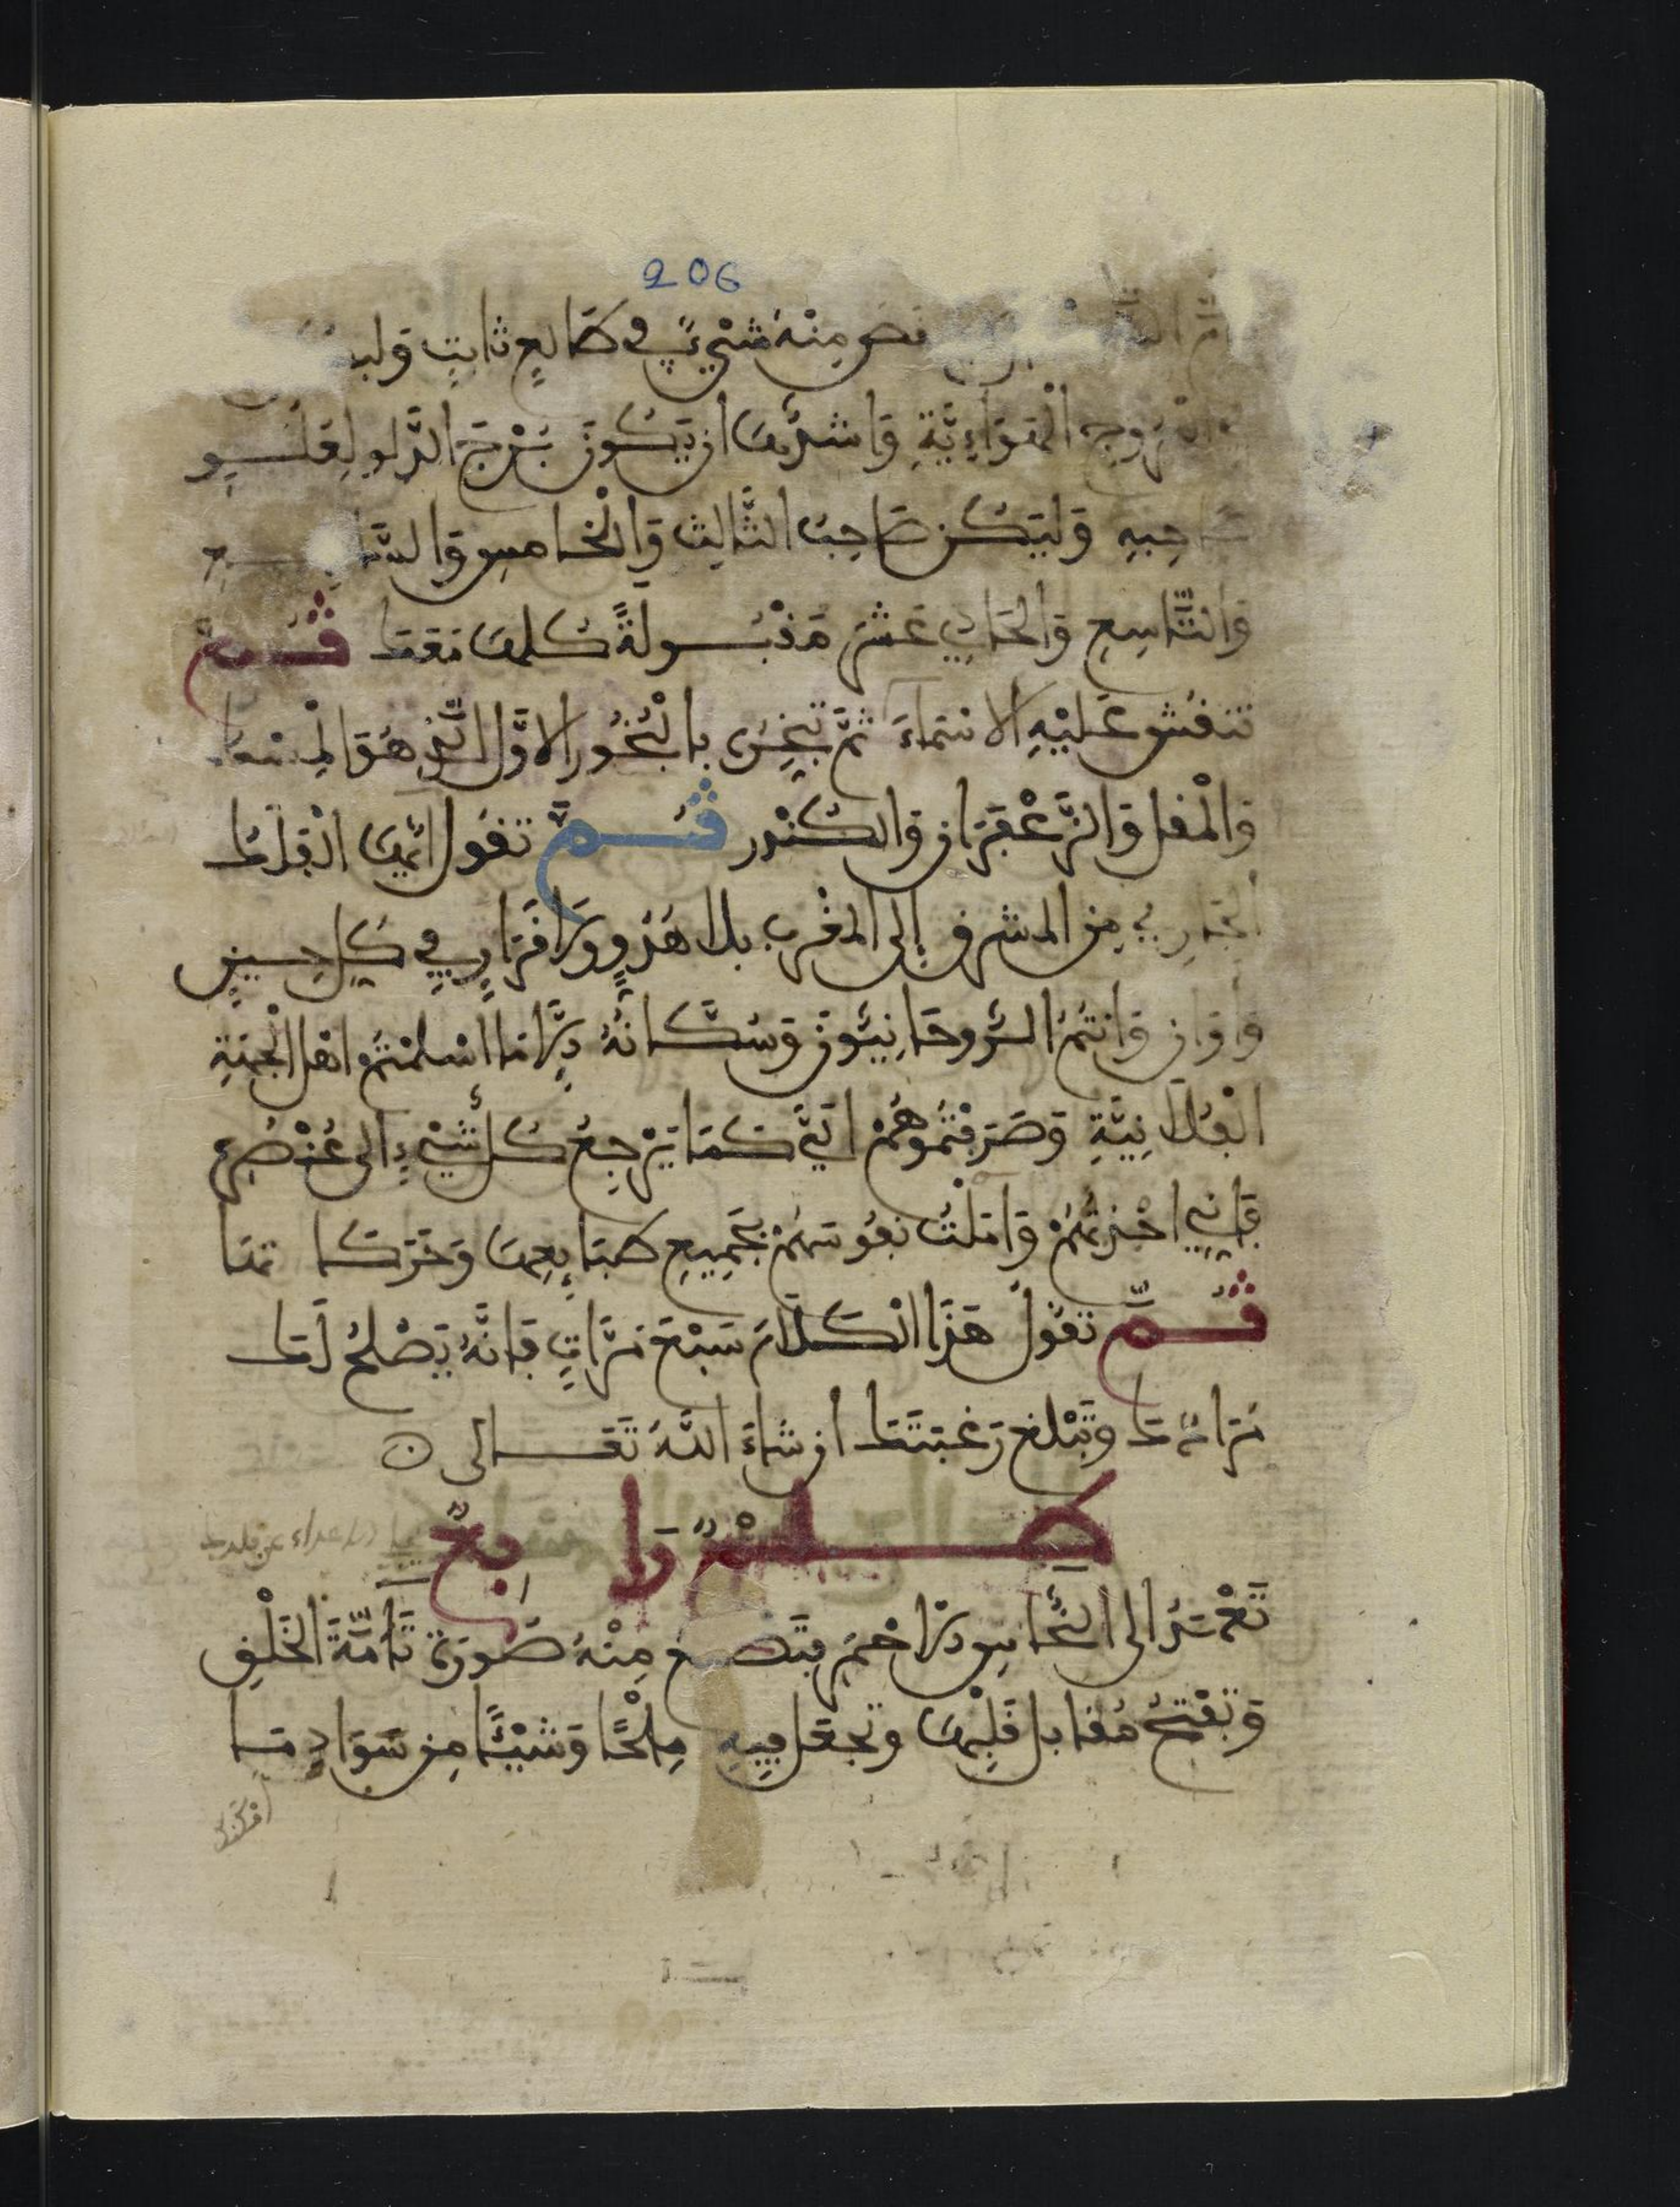 206
ثم نقص منه شيء في طالع ثابت وليكن
البروج الهوائية وأشرفها أن يكون برج الدلو لعلو
صاحبه وليكن صاحب الثالث والخامس والسابع
والتاسع والحادي عشر مقبولة كلها معها ثم
تنقش عليه الاسماء ثم تبخر بالبخور الاول الذي هو الميعة
والمقل والزعفران والكندر ثم تقول أيها الفلك
الجاري من المشرق إلى المغرب بلا هدو ولا قرار في كل حين
وأوان وأنتم الروحانيون وسكانه لما اسلمتم اهل الجنة
الفلانية وصرفتموهم الي كما يرجع كل شيء إلى عنصره
فاني احذرتهم وأملت نفوسهم بجميع طبائعها وحركاتها
ثم تقول هذا الكلام سبع مرات فإنه يصلح لك
مرادك وتبلغ رغبتك ان شاء الله تعالى
طلسم رابع
تعمد إلى النحاس الأحمر فتصنع منه صورة تامة الخلق
وتفتح مقابل قلبها وتجعل فيه ملحا وشيئا من سواد ما